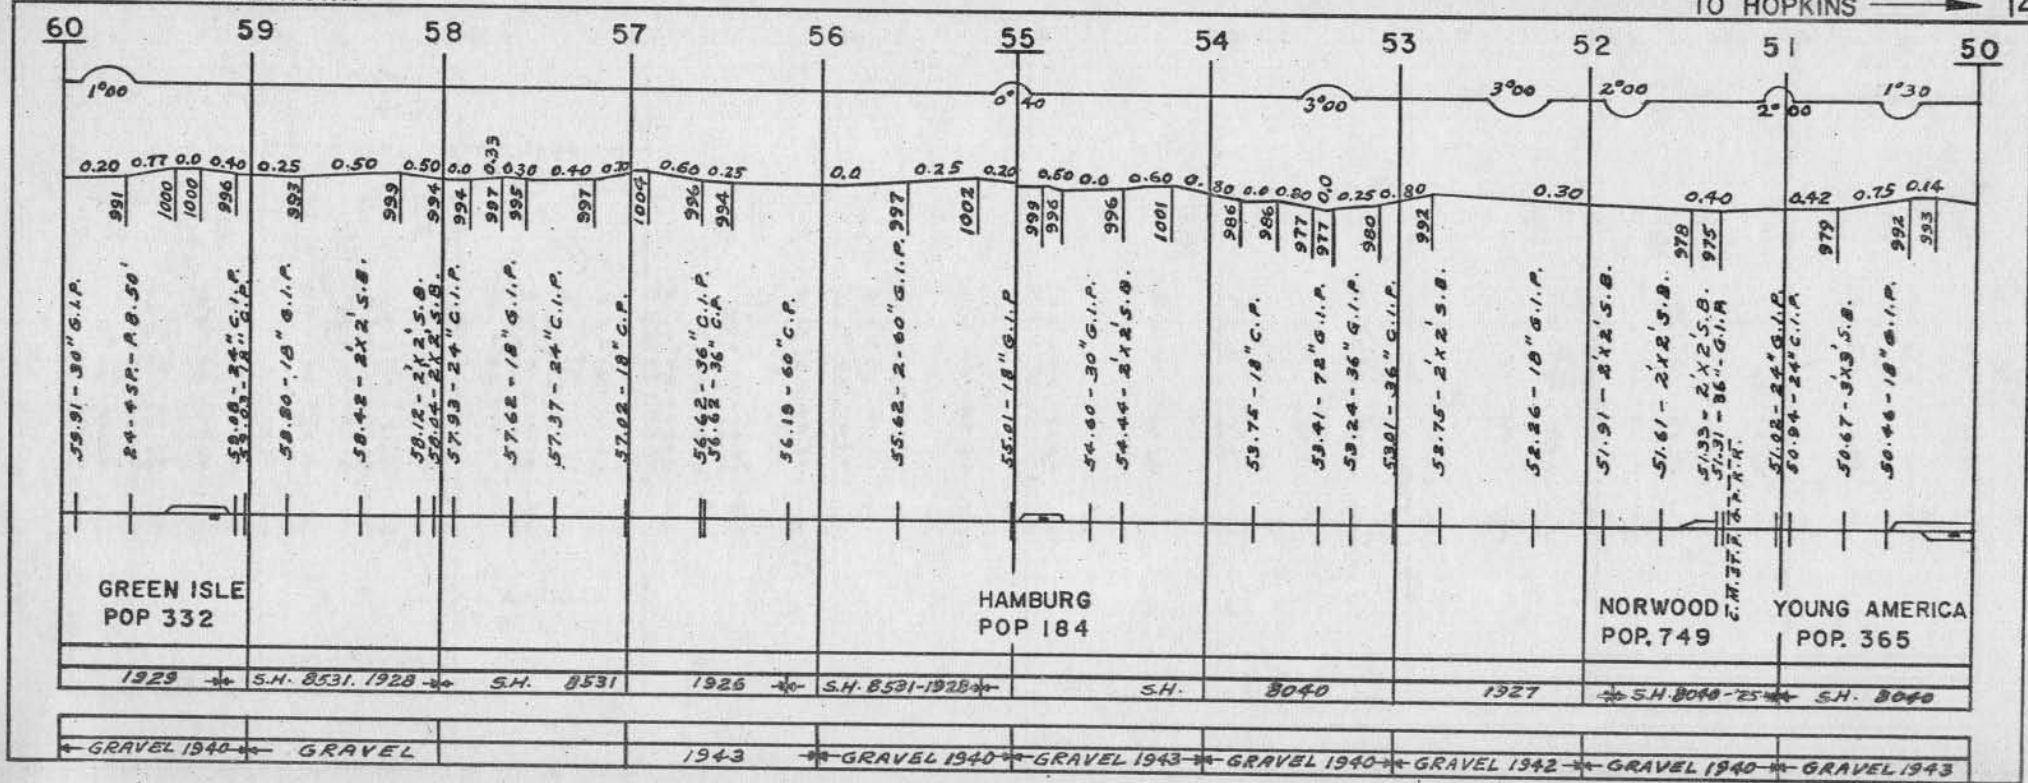 TO HOPKINS 14
60 59 58 57 56 55 54 53 52 51 50
1°00 0°40 3°00 3°00 2°00 2°00 1°30
0.20 0.77 0.0 0.40 0.25 0.50 0.50 0.0 0.33 0.30 0.40 0.60 0.25 0.0 0.25 0.20 0.50 0.0 0.60 0.80 0.0 0.80 0.0 0.25 0.80 0.30 0.40 0.42 0.75 0.14
991 1000 1000 996 993 999 994 994 997 995 997 1004 996 994 997 1002 999 996 996 1001 986 986 977 977 980 992 978 975 979 992 993
59.91 - 30" G.I.P.
24-4SP.-P.B. 50'
59.08 - 24" C.I.P.
58.80 - 18" G.I.P.
58.42 - 2'X2' S.B.
58.12 - 2'X2' S.B.
58.04 - 2'X2' S.B.
57.93 - 24" C.I.P.
57.62 - 18" G.I.P.
57.37 - 24" C.I.P.
57.02 - 18" C.P.
56.62 - 36" C.I.P.
56.62 - 36" C.P.
56.19 - 60" C.P.
55.62 - 2-60" G.I.P.
55.01 - 18" G.I.P
54.60 - 30" G.I.P.
54.44 - 2'X2' S.B.
53.75 - 18" C.P.
53.41 - 72" G.I.P.
53.24 - 36" G.I.P.
53.01 - 36" C.I.P.
52.75 - 2'X2' S.B.
52.26 - 18" G.I.P.
51.91 - 2'X2' S.B.
51.61 - 2'X2' S.B.
51.33 - 2'X2' S.B.
51.31 - 36" G.I.P.
C.M.ST.P.&P.R.R.
51.02 - 24" G.I.P.
50.94 - 24" C.I.P.
50.67 - 3'X3' S.B.
50.46 - 18" G.I.P.
GREEN ISLE
POP 332
HAMBURG
POP 184
NORWOOD
POP. 749
YOUNG AMERICA
POP. 365
1929 S.H. 8531. 1928 S.H. 8531 1926 S.H. 8531-1928 S.H. 8040 1927 S.H. 8040-'25 S.H. 8040
GRAVEL 1940 GRAVEL 1943 GRAVEL 1940 GRAVEL 1943 GRAVEL 1940 GRAVEL 1942 GRAVEL 1940 GRAVEL 1943